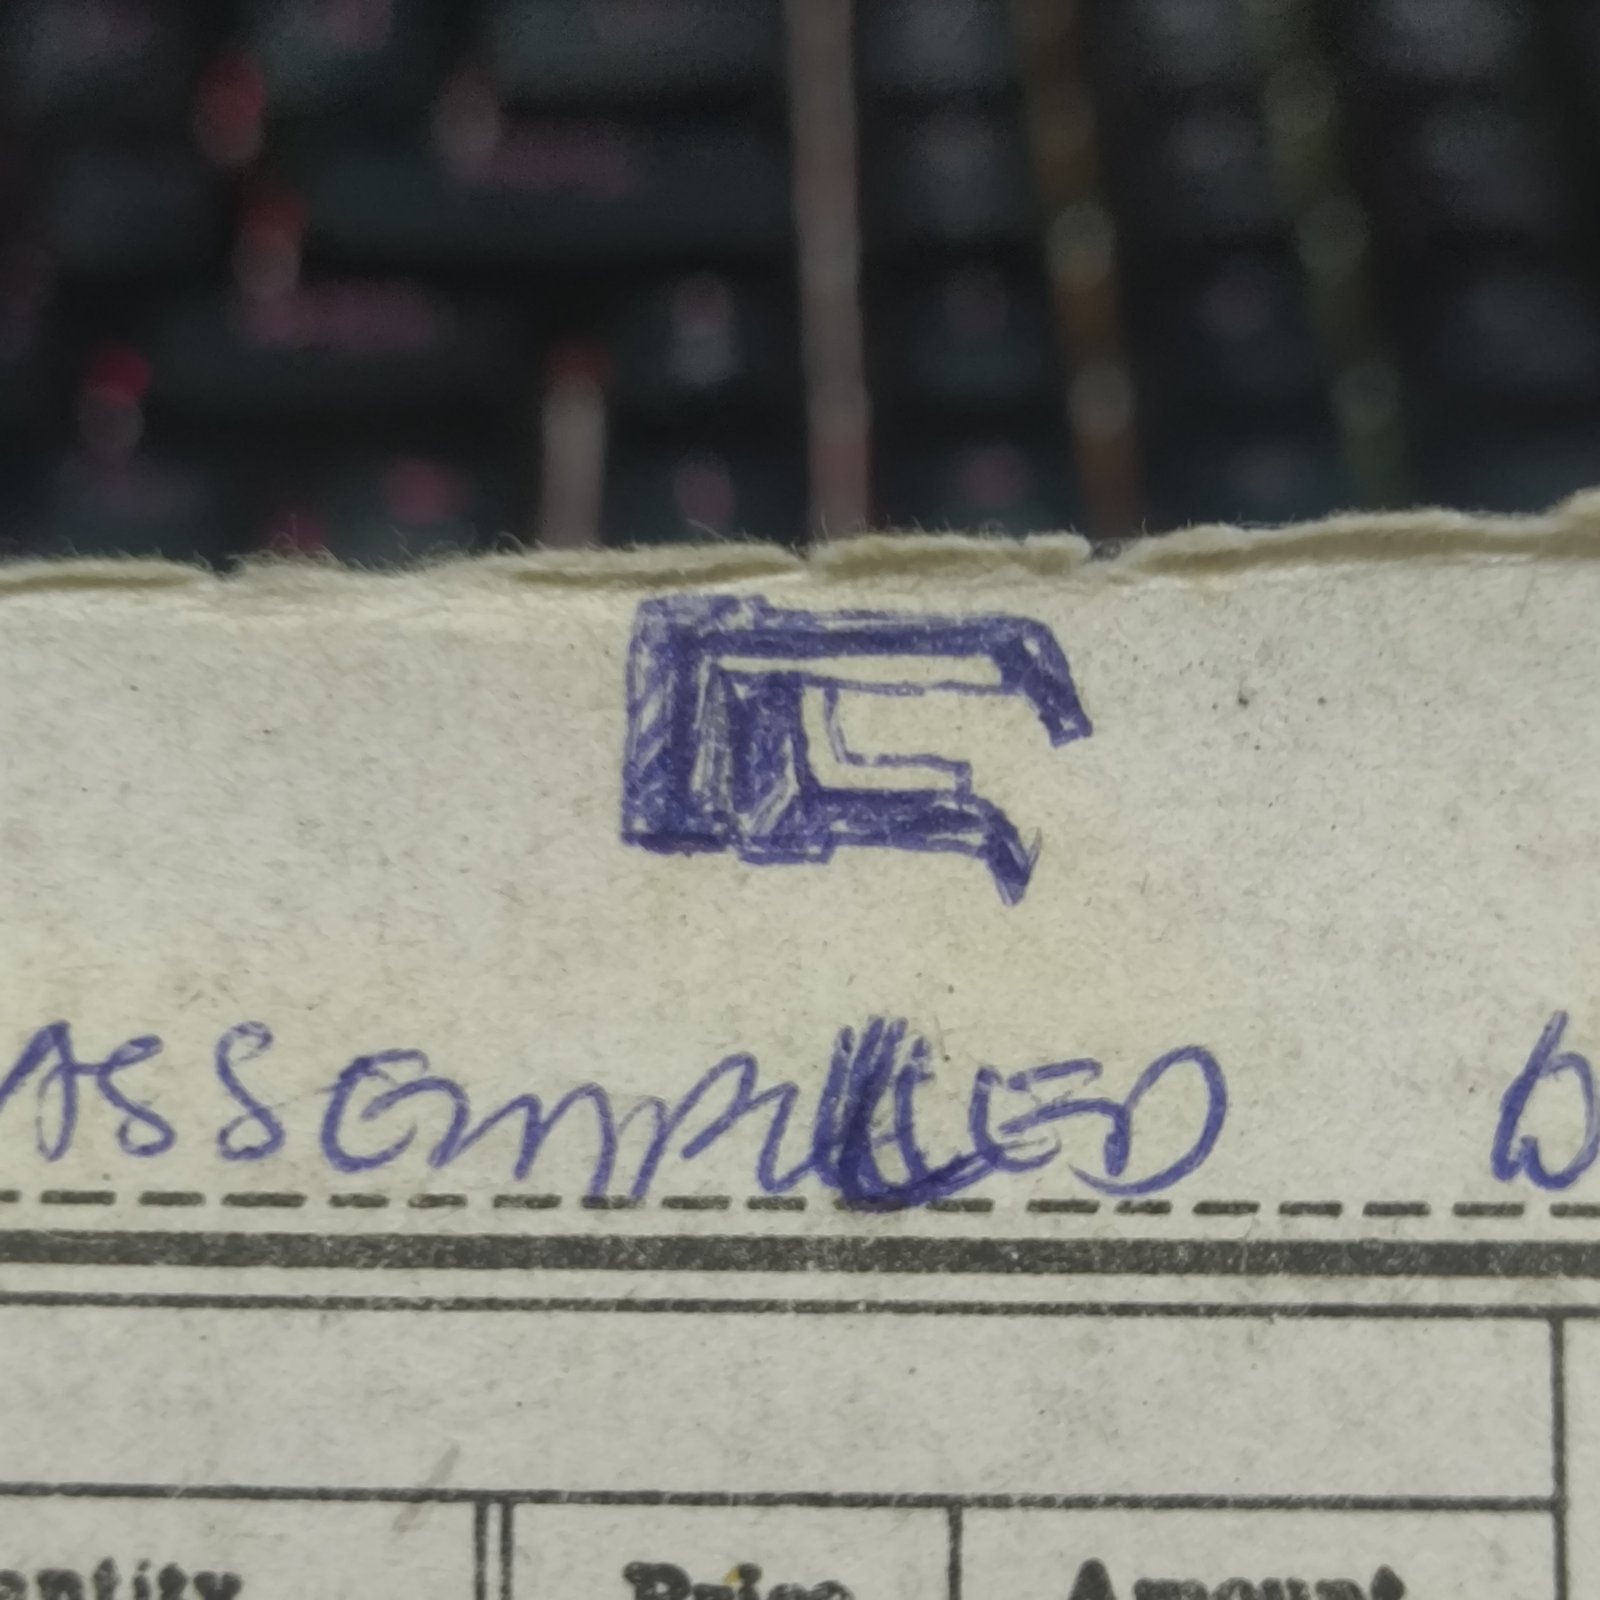 ASSEMBLLED
antity Price Amount